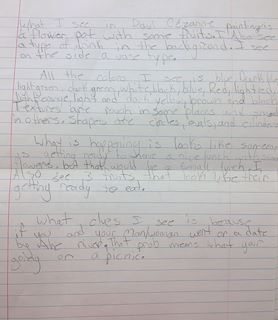 What I see in Paul Cézanne painting is
a flower pot with some fruits. I also see
a type of drink in the background. I see
on the side a vase type.
All the colors I see is blue, Dark blue
light green, dark green, white, black, blue, Red, light red,
light and dark yellow, brown and black
Textures are rough in some places and
in others. Shapes are circles, ovals, and
What is happening is looks like someone
is getting ready to have a nice lunch with some
flowers, but that would be a small lunch. I
Also see 3 fruits that look like their
getting ready to eat.
What clues I see is because
if you and your man/woman went on a date
by the river. That prob means what your
going on a picnic.